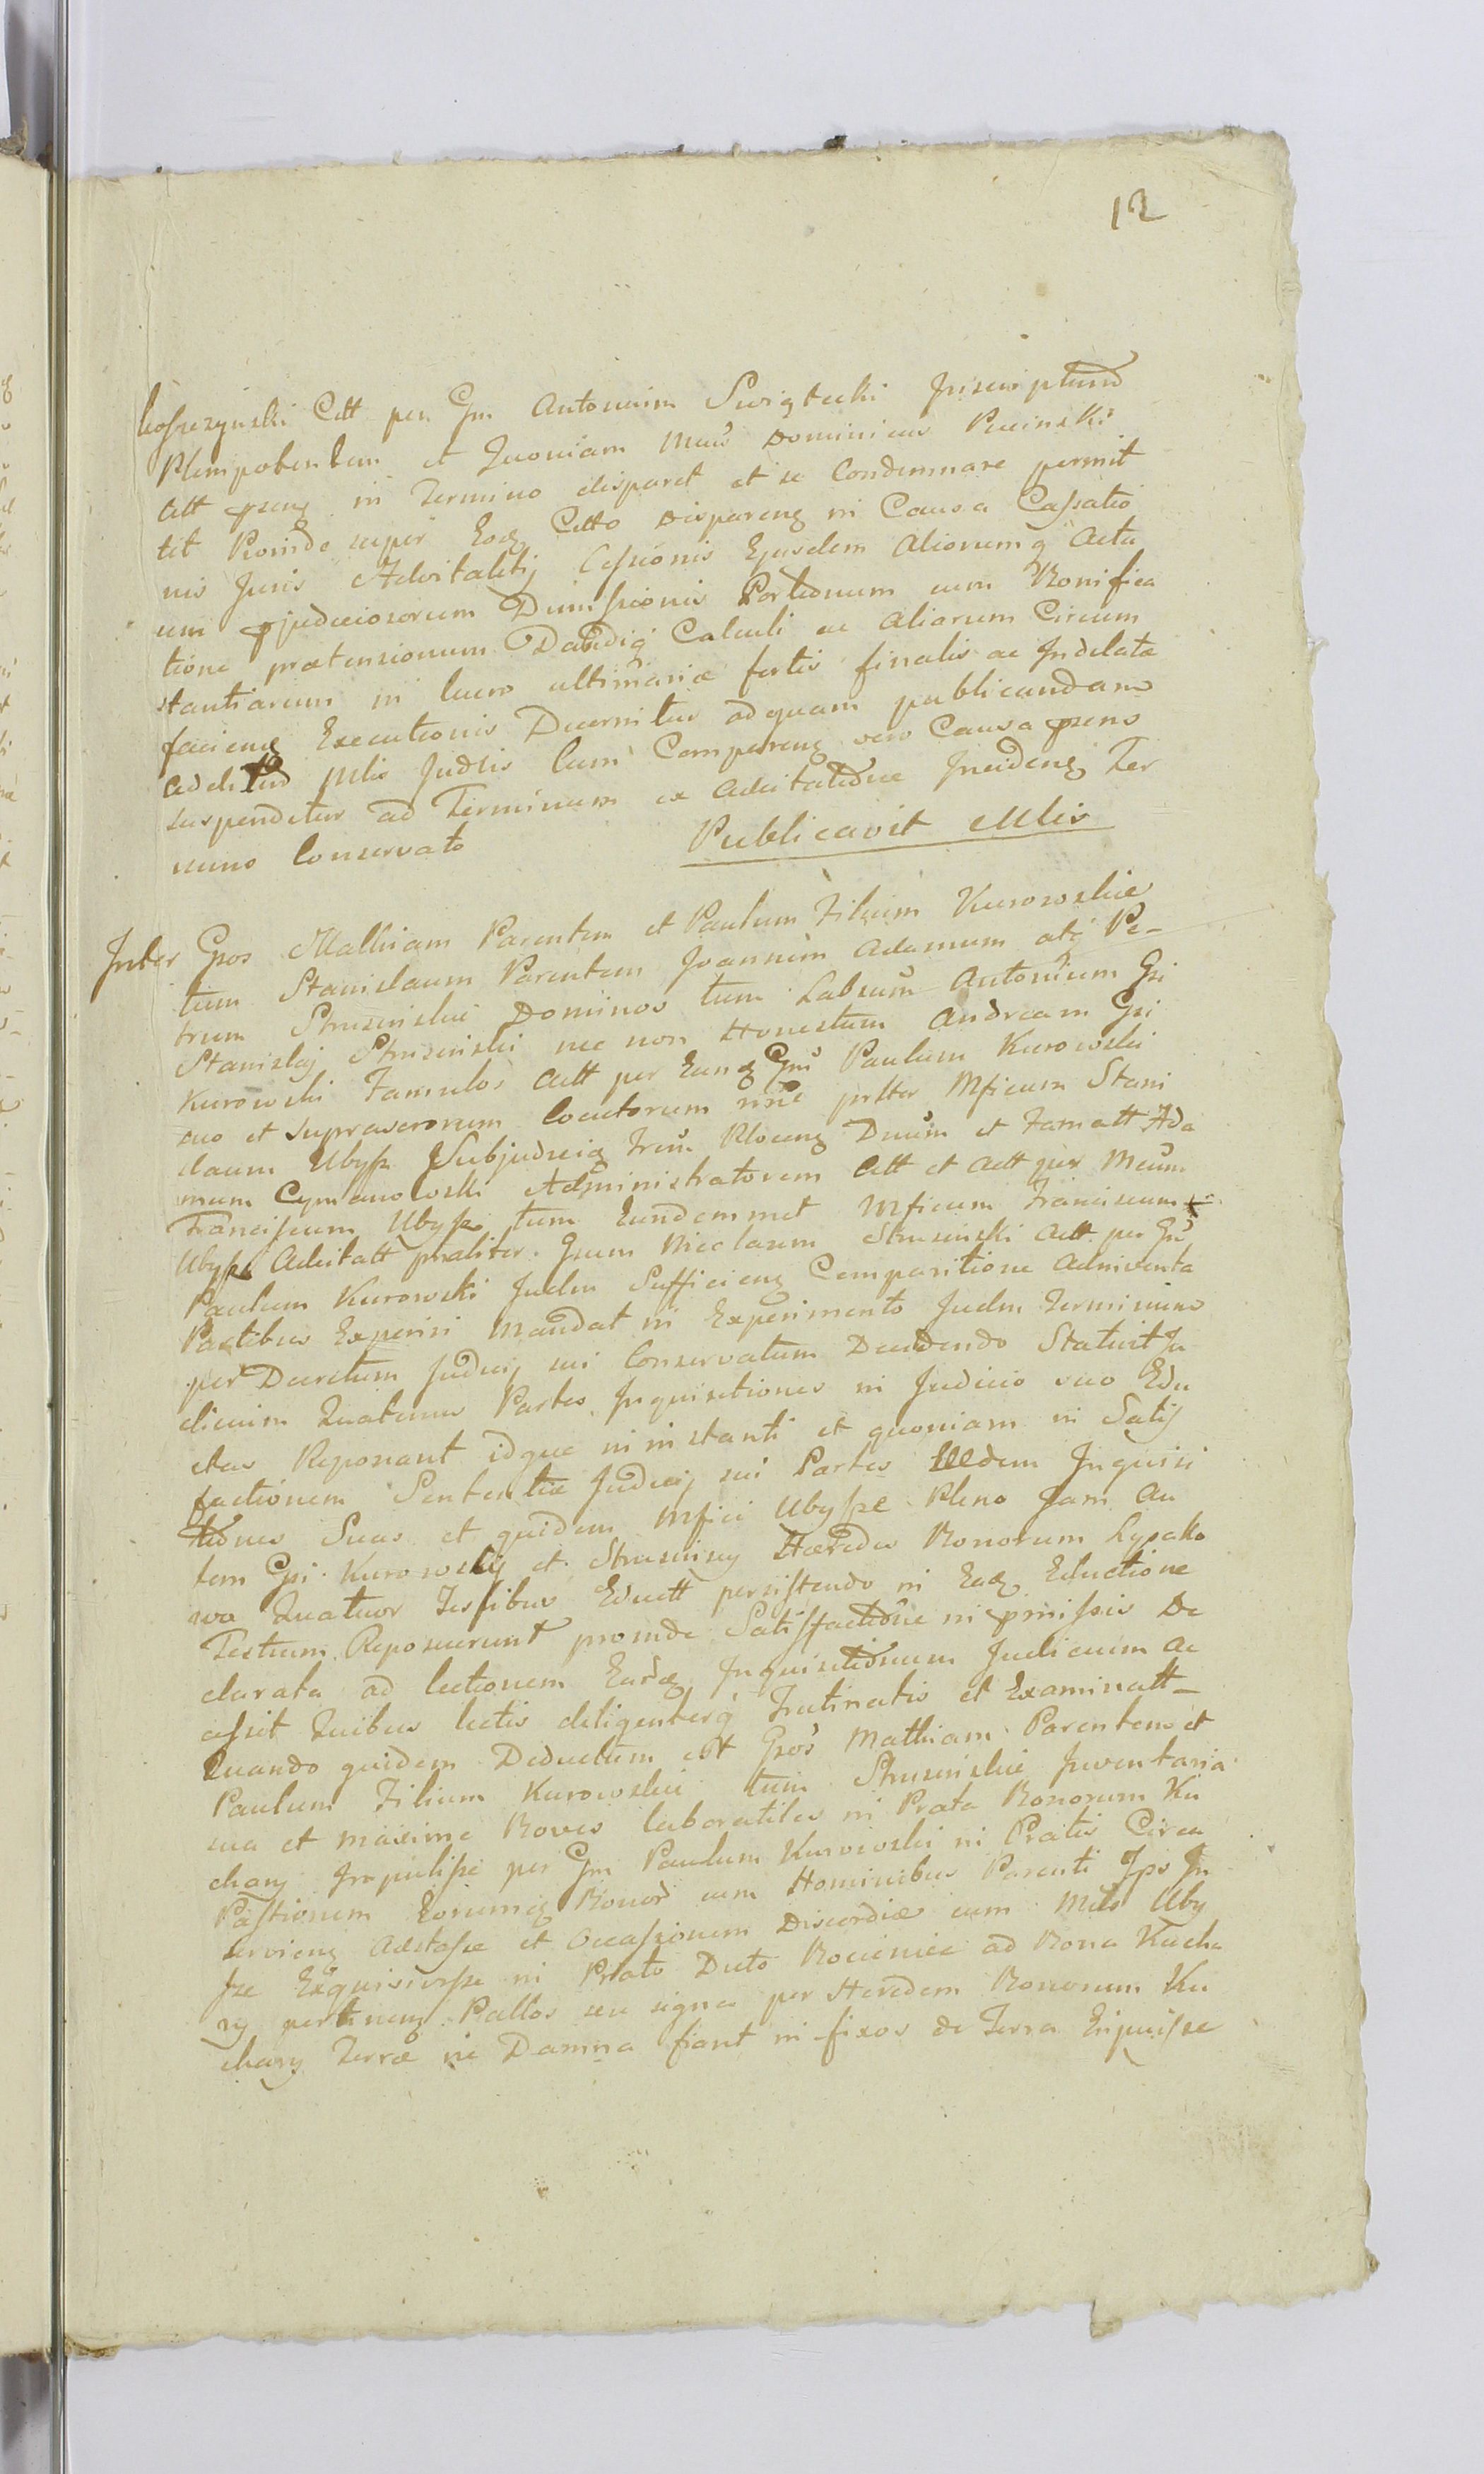 12
koszczynski Citt per Gm Antonium Swigtecki Inscriptum
Plenipotentem et Quoniam Mcus Dominicus Pucinski
Citt pseng in Termino disparet et se Condemnare permit
tit Proinde super Eodg Citto Dispareng in Causa Cassatio
nis Juris Advitalitij Cessionis Ejusdem Aliorumq Acto
um pjudiciosorum Dimissionis Portionum cum Bonifica
tione praetensionum Dandiq Calculi ac Aliarum Circum
stantiarum in lucro ultimariae fortis finalis ac Indelatae
facieng Executionis Decernitur ad quam publicandam
addit Mlis Judris Cum Compareng vero Causa psens
suspenditur ad Terminum ex Adcitatione Incideng Ter
mino Conservato
Publicavit Mlis
Inter Gsos Mathiam Parentem et Paulum Filium Kurowskie
tum Stanislaum Parentem Joannem Adamum atq Pe-
trum Strusinskie Dominos tum Labsum Antonium Gsi
Stanislaj Strusinski nec non Honestum Andream Gsi
Kurowski Famulos Actt per Eundg Gm Paulum Kurowski
suo et suprascrorum Coactorum nne psltter Mficum Stani
slaum Ubysz Subjudicig Trem Ploceng Dnum et Fam att Ada
mum Cymanowski Administratorem Citt et Actt per Mcum
Franciszcum Ubysz tum Eundemmet Mficum Franciscum
Ubysz Adcitatt psnaliter Gsum Nicolaum Strusinski Actt per Gm
Paulum Kurowski Judm Sufficieng Comparitione Adinventa
Partibus Experiri Mandat in Experimento Judm Terminum
per Decretum Judicij sui Conservatum Decidendo Statuit Ju
dicium Quatenus Partes Inquisitiones in Judicio suo Edu
ctas Reponant idque in instanti et quoniam in Satis
factionem Sententiae Judicij sui Partes Eedem Inquisi
tiones Suas et quidem Mfici Ubysze Pleno Jam au
tem Gsi Kurowscij et Strusinscy Haeredes Bonorum Lysako
wo Quatuor Testibus Eductt persistendo in Eadg Eductione
Testium Reposuerunt proinde Satisfactione in pmissis De
clarata ad lectionem Eardg Inquisitionum Judicium ac
cessit Quibus lectis diligenterq Trutinatis et Examinatt-
Quando quidem Deductum est Gsos Mathiam Parentem et
Paulum Filium Kurowskie tum Strusinskie Inventaria
sua et maxime Boves laboratiles in Prata Bonorum Ku
chary Impulisse per Gm Paulum Kurowski in Pratis Circa
Pastionem Eorumdg Bonor cum Hominibus Parenti Ipso In
servieng Adstasse et Occasionem Discordiae cum Mcis Uby
sze Exquisivisse in Prato Dicto Bocieniec ad Bona Kucha
ry pertineng Pallos seu signa per Heredem Bonorum Ku
chary Terrae ne Damna fiant in fixos de Terra Eripuisse